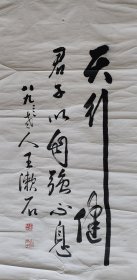 天行健
君子以自强不息
八九老人王漱石